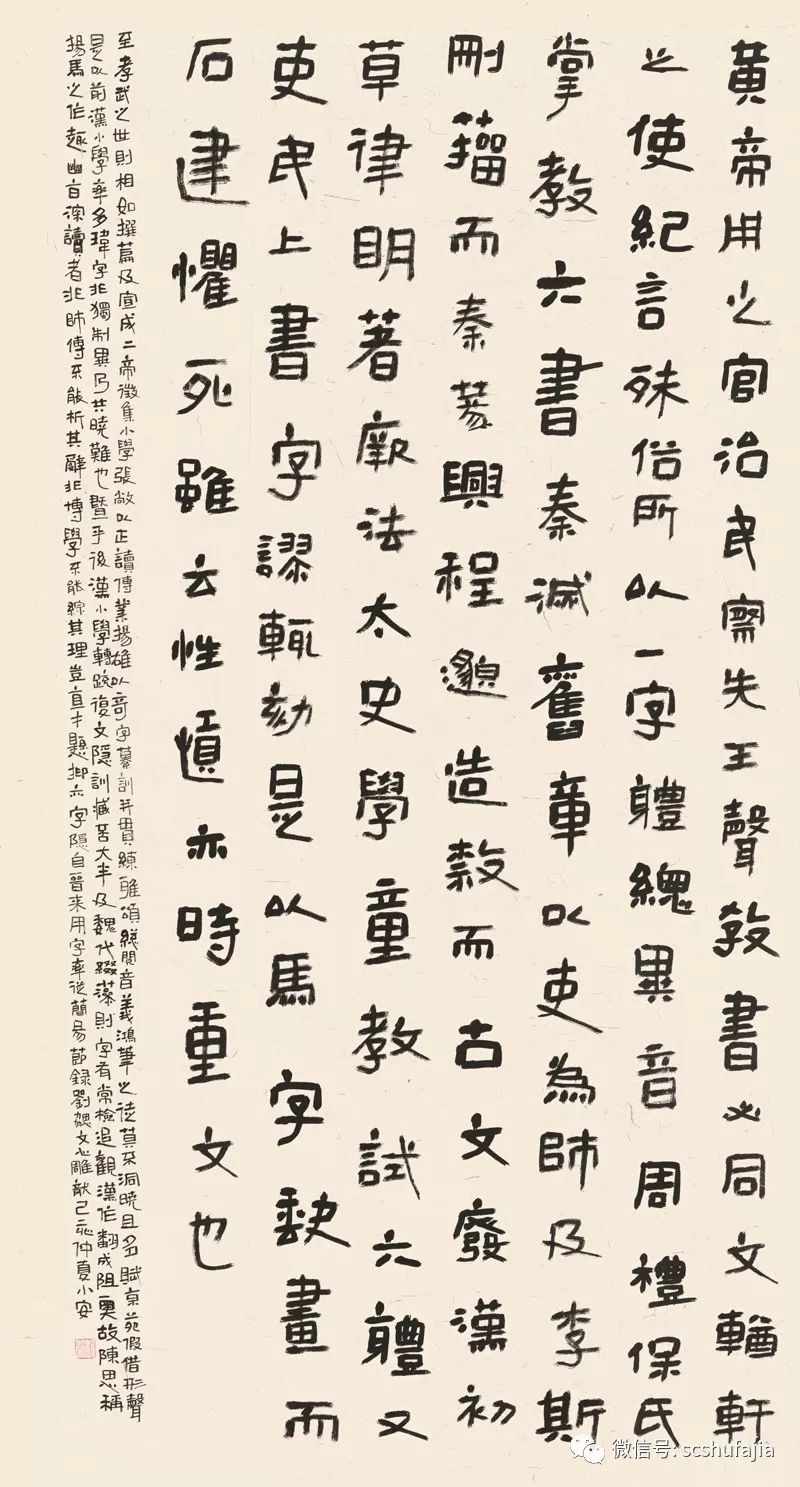 黃帝用之官治民察先王聲教書必同文輶軒
之使紀言殊俗所以一字體總異音周禮保氏
掌教六書秦滅舊章以吏為師及李斯
刪籀而秦篆興程邈造隸而古文廢漢初
草律明著厥法太史學童教試六體又
吏民上書字謬輒劾是以馬字缺畫而
石建懼死雖云性慎亦時重文也
至孝武之世則相如撰篇及宣成二帝徵集小學張敞以正讀傳業揚雄以奇字纂訓并貫練雅頌總閱音義鴻筆之徒莫不洞曉且多賦京苑假借形聲
是以前漢小學率多瑋字非獨制異乃共曉難也暨乎後漢小學轉疎復文隱訓臧否大半及魏代綴藻則字有常檢追觀漢作翻成阻奧故陳思稱
揚馬之作趣幽旨深讀者非師傅不能析其辭非博學不能綜其理豈直才懸抑亦字隱自晉來用字率從簡易節錄劉勰文心雕龍己亥仲夏小安
微信号: scshufajia